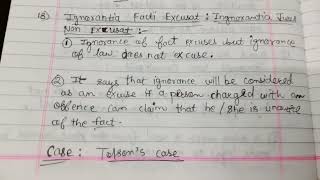 (13) Ignorantia Facti Excusat : Ingnorantia Juris
Non Excusat :-
(1) Ignorance of fact excuses but ignorance
of law does not excuse.
(2) It says that ignorance will be considered
as an excuse if a person charged with an
offence can claim that he / she is unaware
of the fact.
Case : Tolson's case